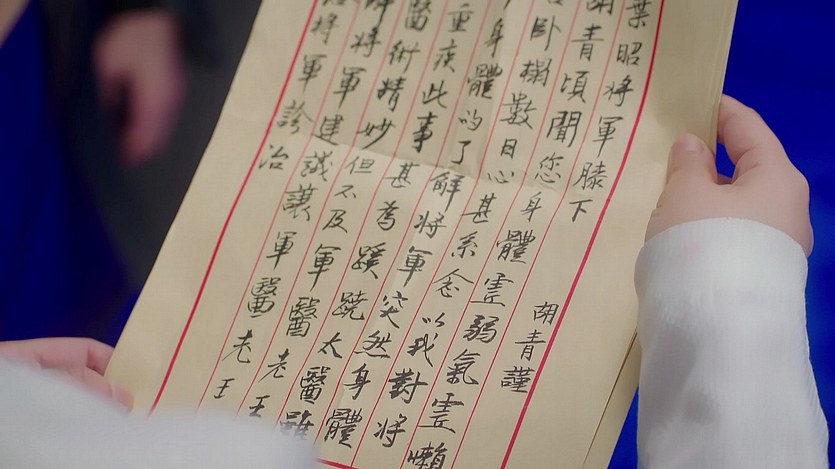 葉昭將軍膝下 胡青謹
胡青頃聞您身體虛弱氣虛懶
臥榻數日心甚系念以我對將
身體的了解將軍突然身體
重疾此事甚為蹊蹺太醫雖
醫術精妙但不及軍醫老王
將軍建議讓軍醫老王
將軍診治